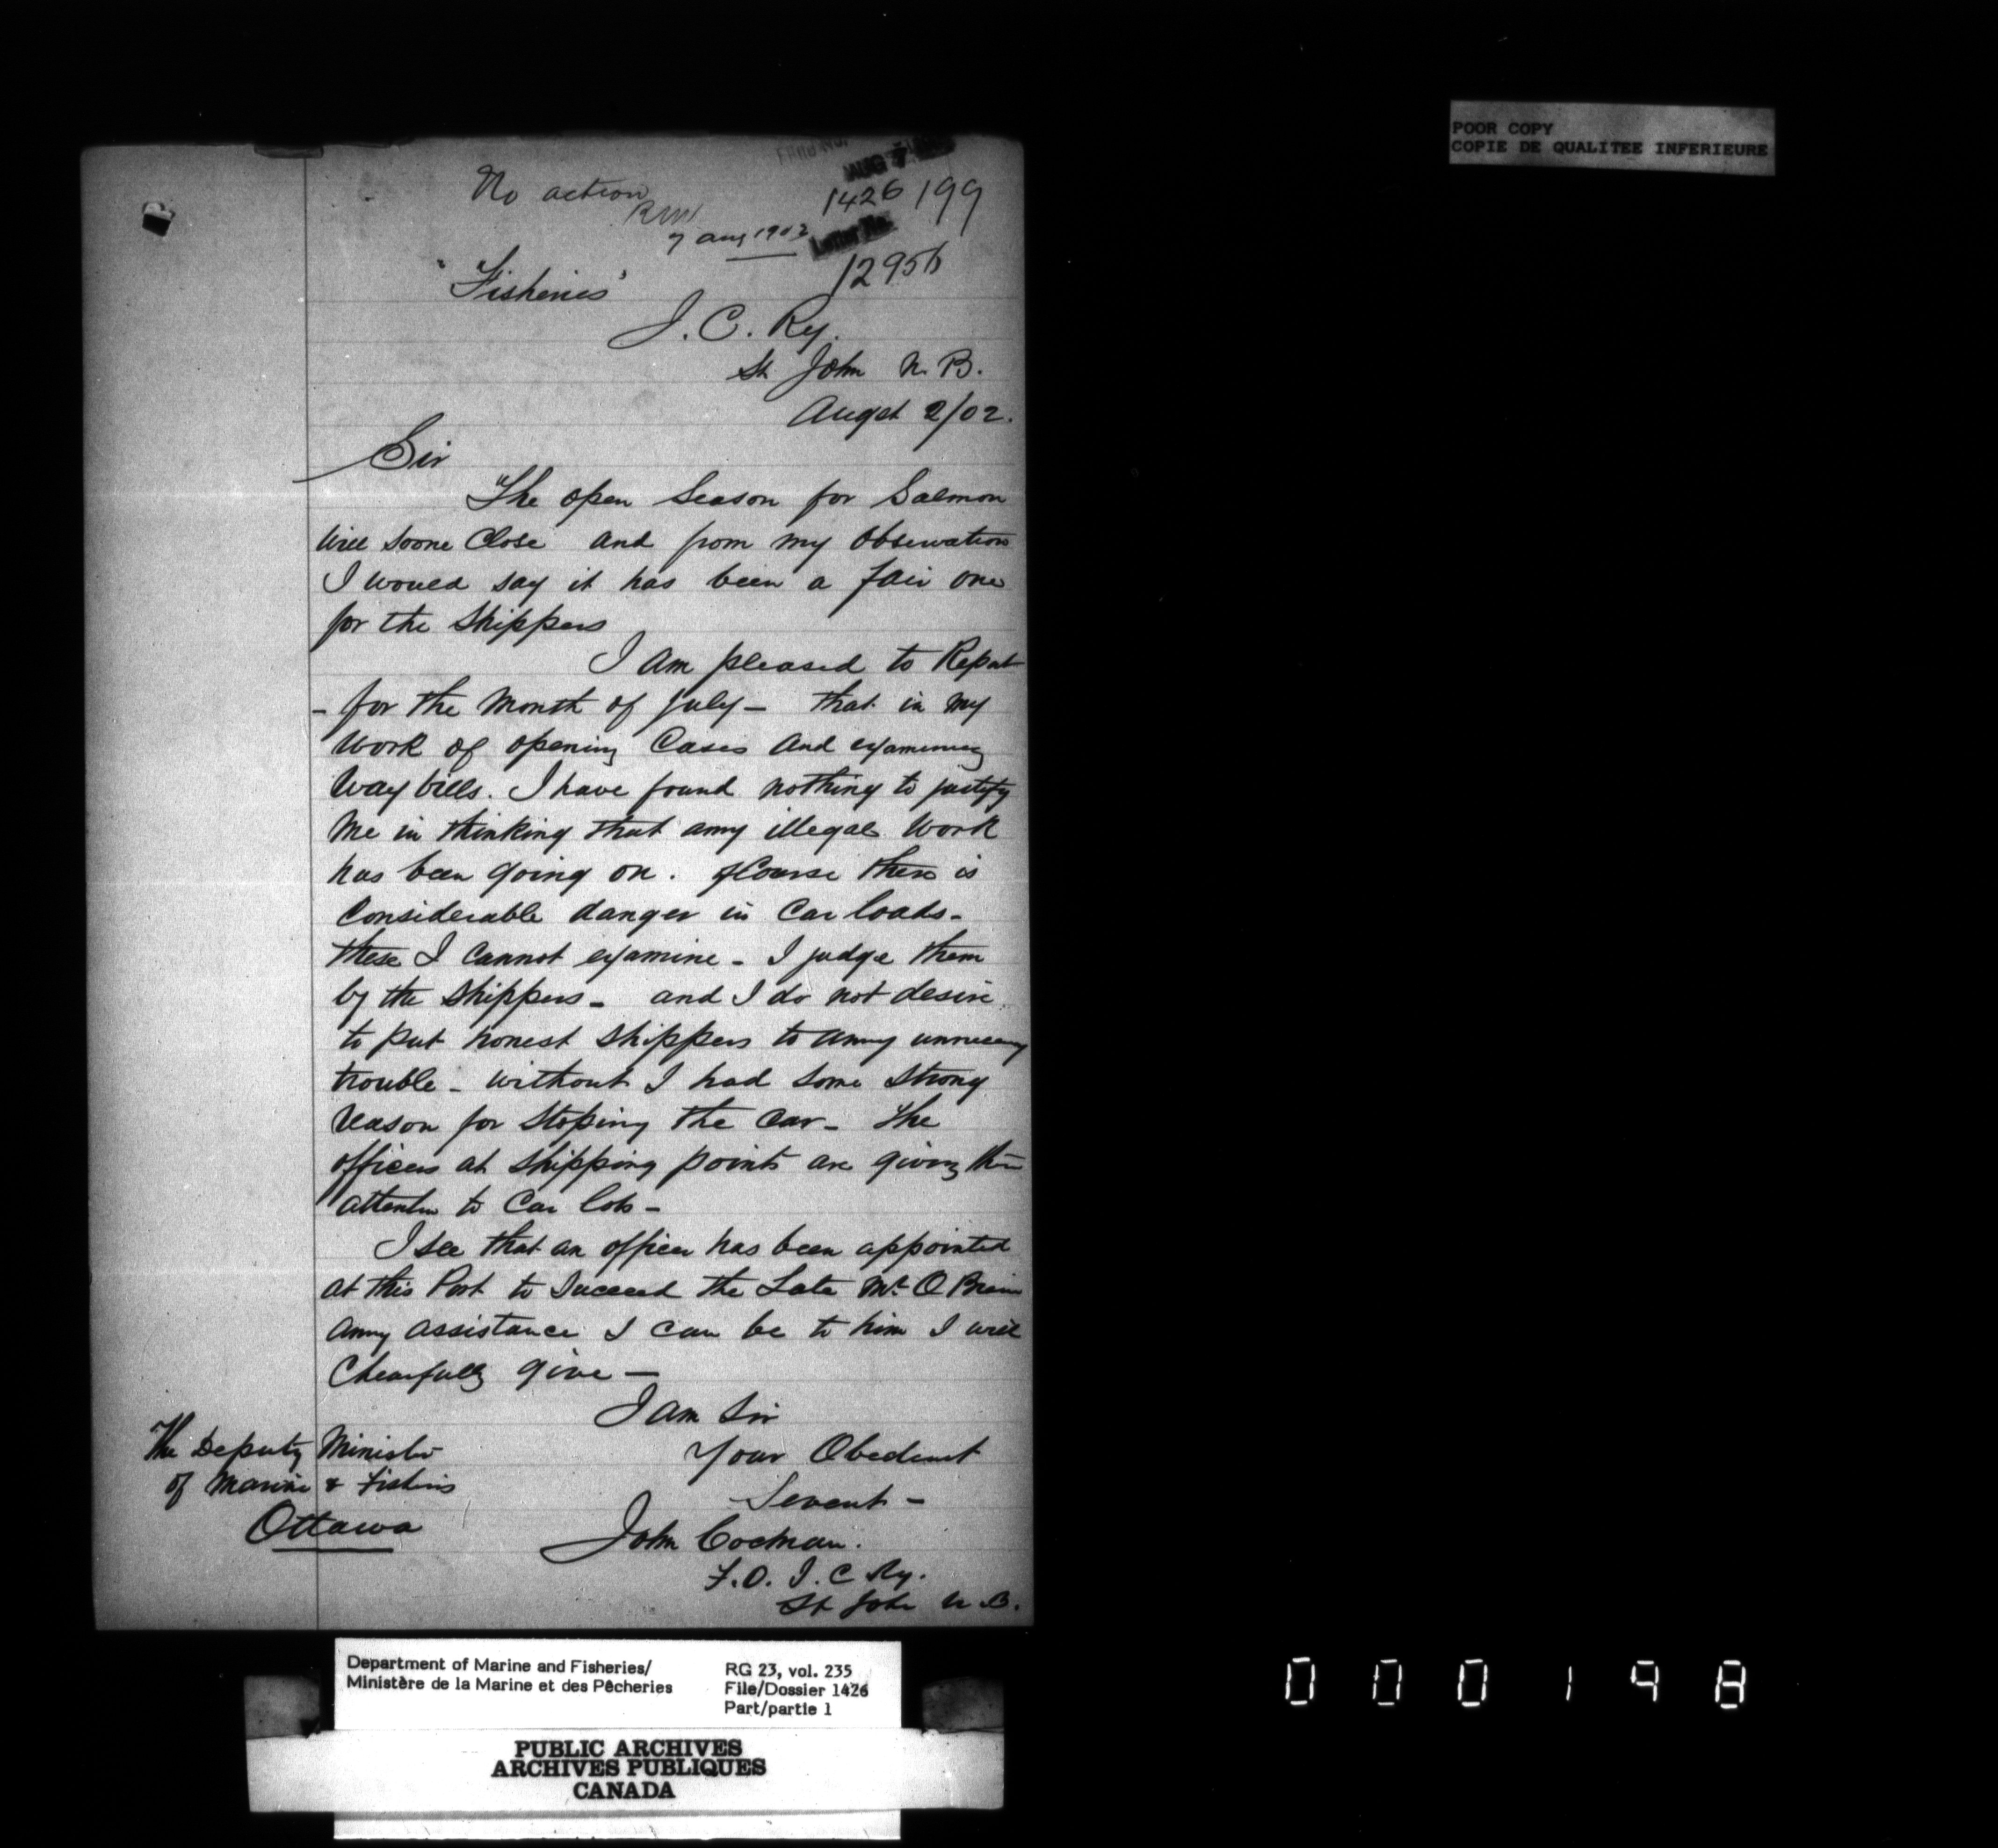 POOR COPY
COPIE DE QUALITEE INFERIEURE
AUG 7
No action
1426 199
RW
7 aug 1902
Letter No.
12956
"Fisheries"
I. C. Ry.
St John N. B.
Augst 2/02.
Sir
The open Season for Salmon
will soone Close and from my Observation
I would say it has been a fair one
for the Shippers
I am pleased to Report
- for the Month of July - that in my
work of opening Cases and examining
Way bills. I have found nothing to justify
me in thinking that anny illegal work
has been going on. of Course there is
Considerable danger in Car loads -
these I cannot examine - I judge them
by the Shippers - and I do not desire
to put honest Shippers to anny unnecessary
trouble - without I had some strong
reason for stoping the Car - The
officers at shipping points are giving their
attention to Car lots -
I see that an officer has been appointed
at this Port to Succeed the Late Mr. O Brien
anny assistance I can be to him I will
Chearfully give -
I am Sir
Your Obedient
Servent -
The Deputy Minister
of Marine & Fisheries
Ottawa
John Cochran.
F. O. I. C Ry.
St John N. B.
Department of Marine and Fisheries/
Ministère de la Marine et des Pêcheries
RG 23, vol. 235
File/Dossier 1426
Part/partie 1
PUBLIC ARCHIVES
ARCHIVES PUBLIQUES
CANADA
000198